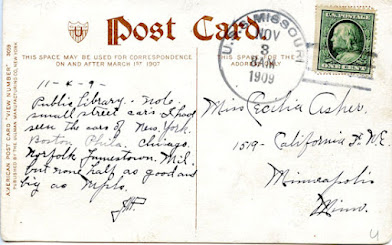 Post Card
THIS SPACE MAY BE USED FOR CORRESPONDENCE
ON AND AFTER MARCH 1ST 1907
THIS SPACE
ADDRESS
U.S.S. MISSOURI
NOV
3
8 AM
1909
AMERICAN POST CARD "VIEW NUMBER" 3059
Public Library. Note
small street cars I have
seen the cars of New York.
Boston Phila. Chicago.
Norfolk Jamestown. Mil.
but none half as good and
big as Mpls.
Miss Cecilia Asher.
1519 - California St. N.E.
Minneapolis
Minn.